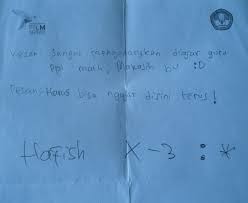 FILM
Kesan: Sangat menyenangkan diajar guru
ppl math, Makasih bu :D
Pesan: Harus bisa ngajar disini terus!
Hafish X-3 :*